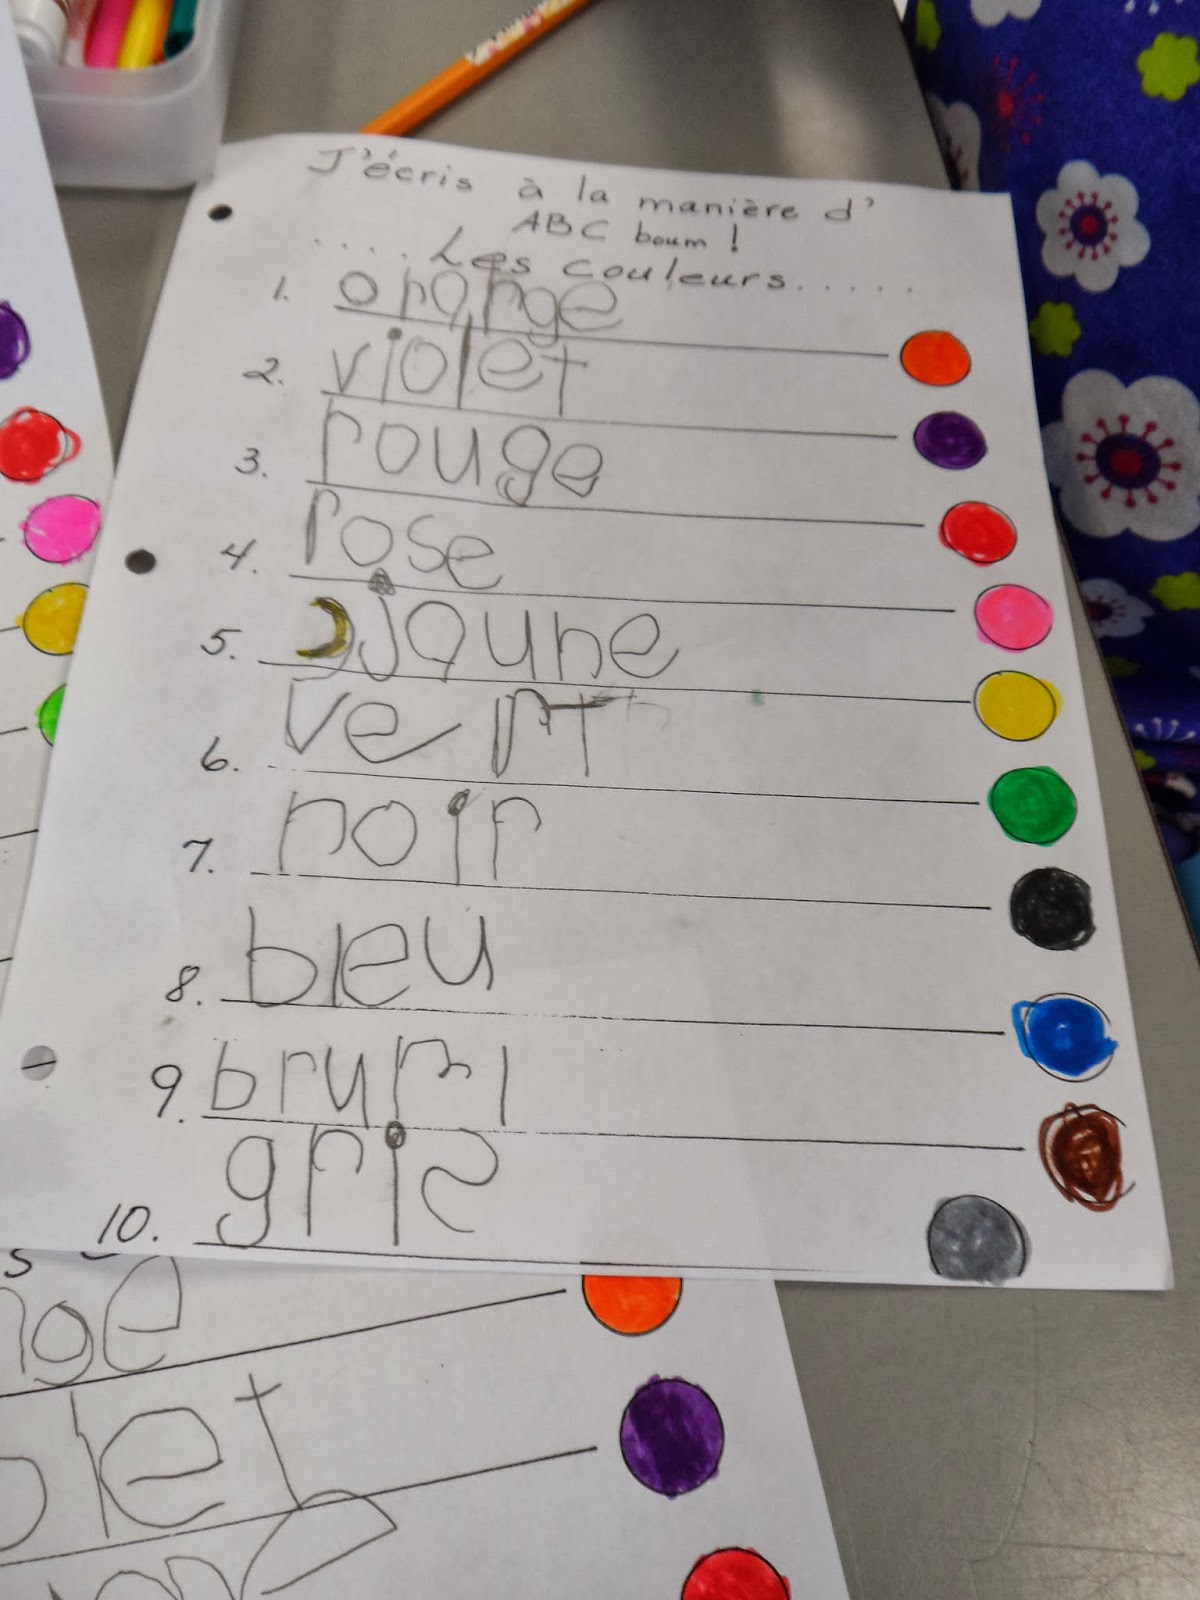 J'écris à la manière d'
ABC boum !
.... Les couleurs.....
1. orange
2. violet
3. rouge
4. rose
5. jaune
6. vert
7. noir
8. bleu
9. brun
10. gris
nge
olet